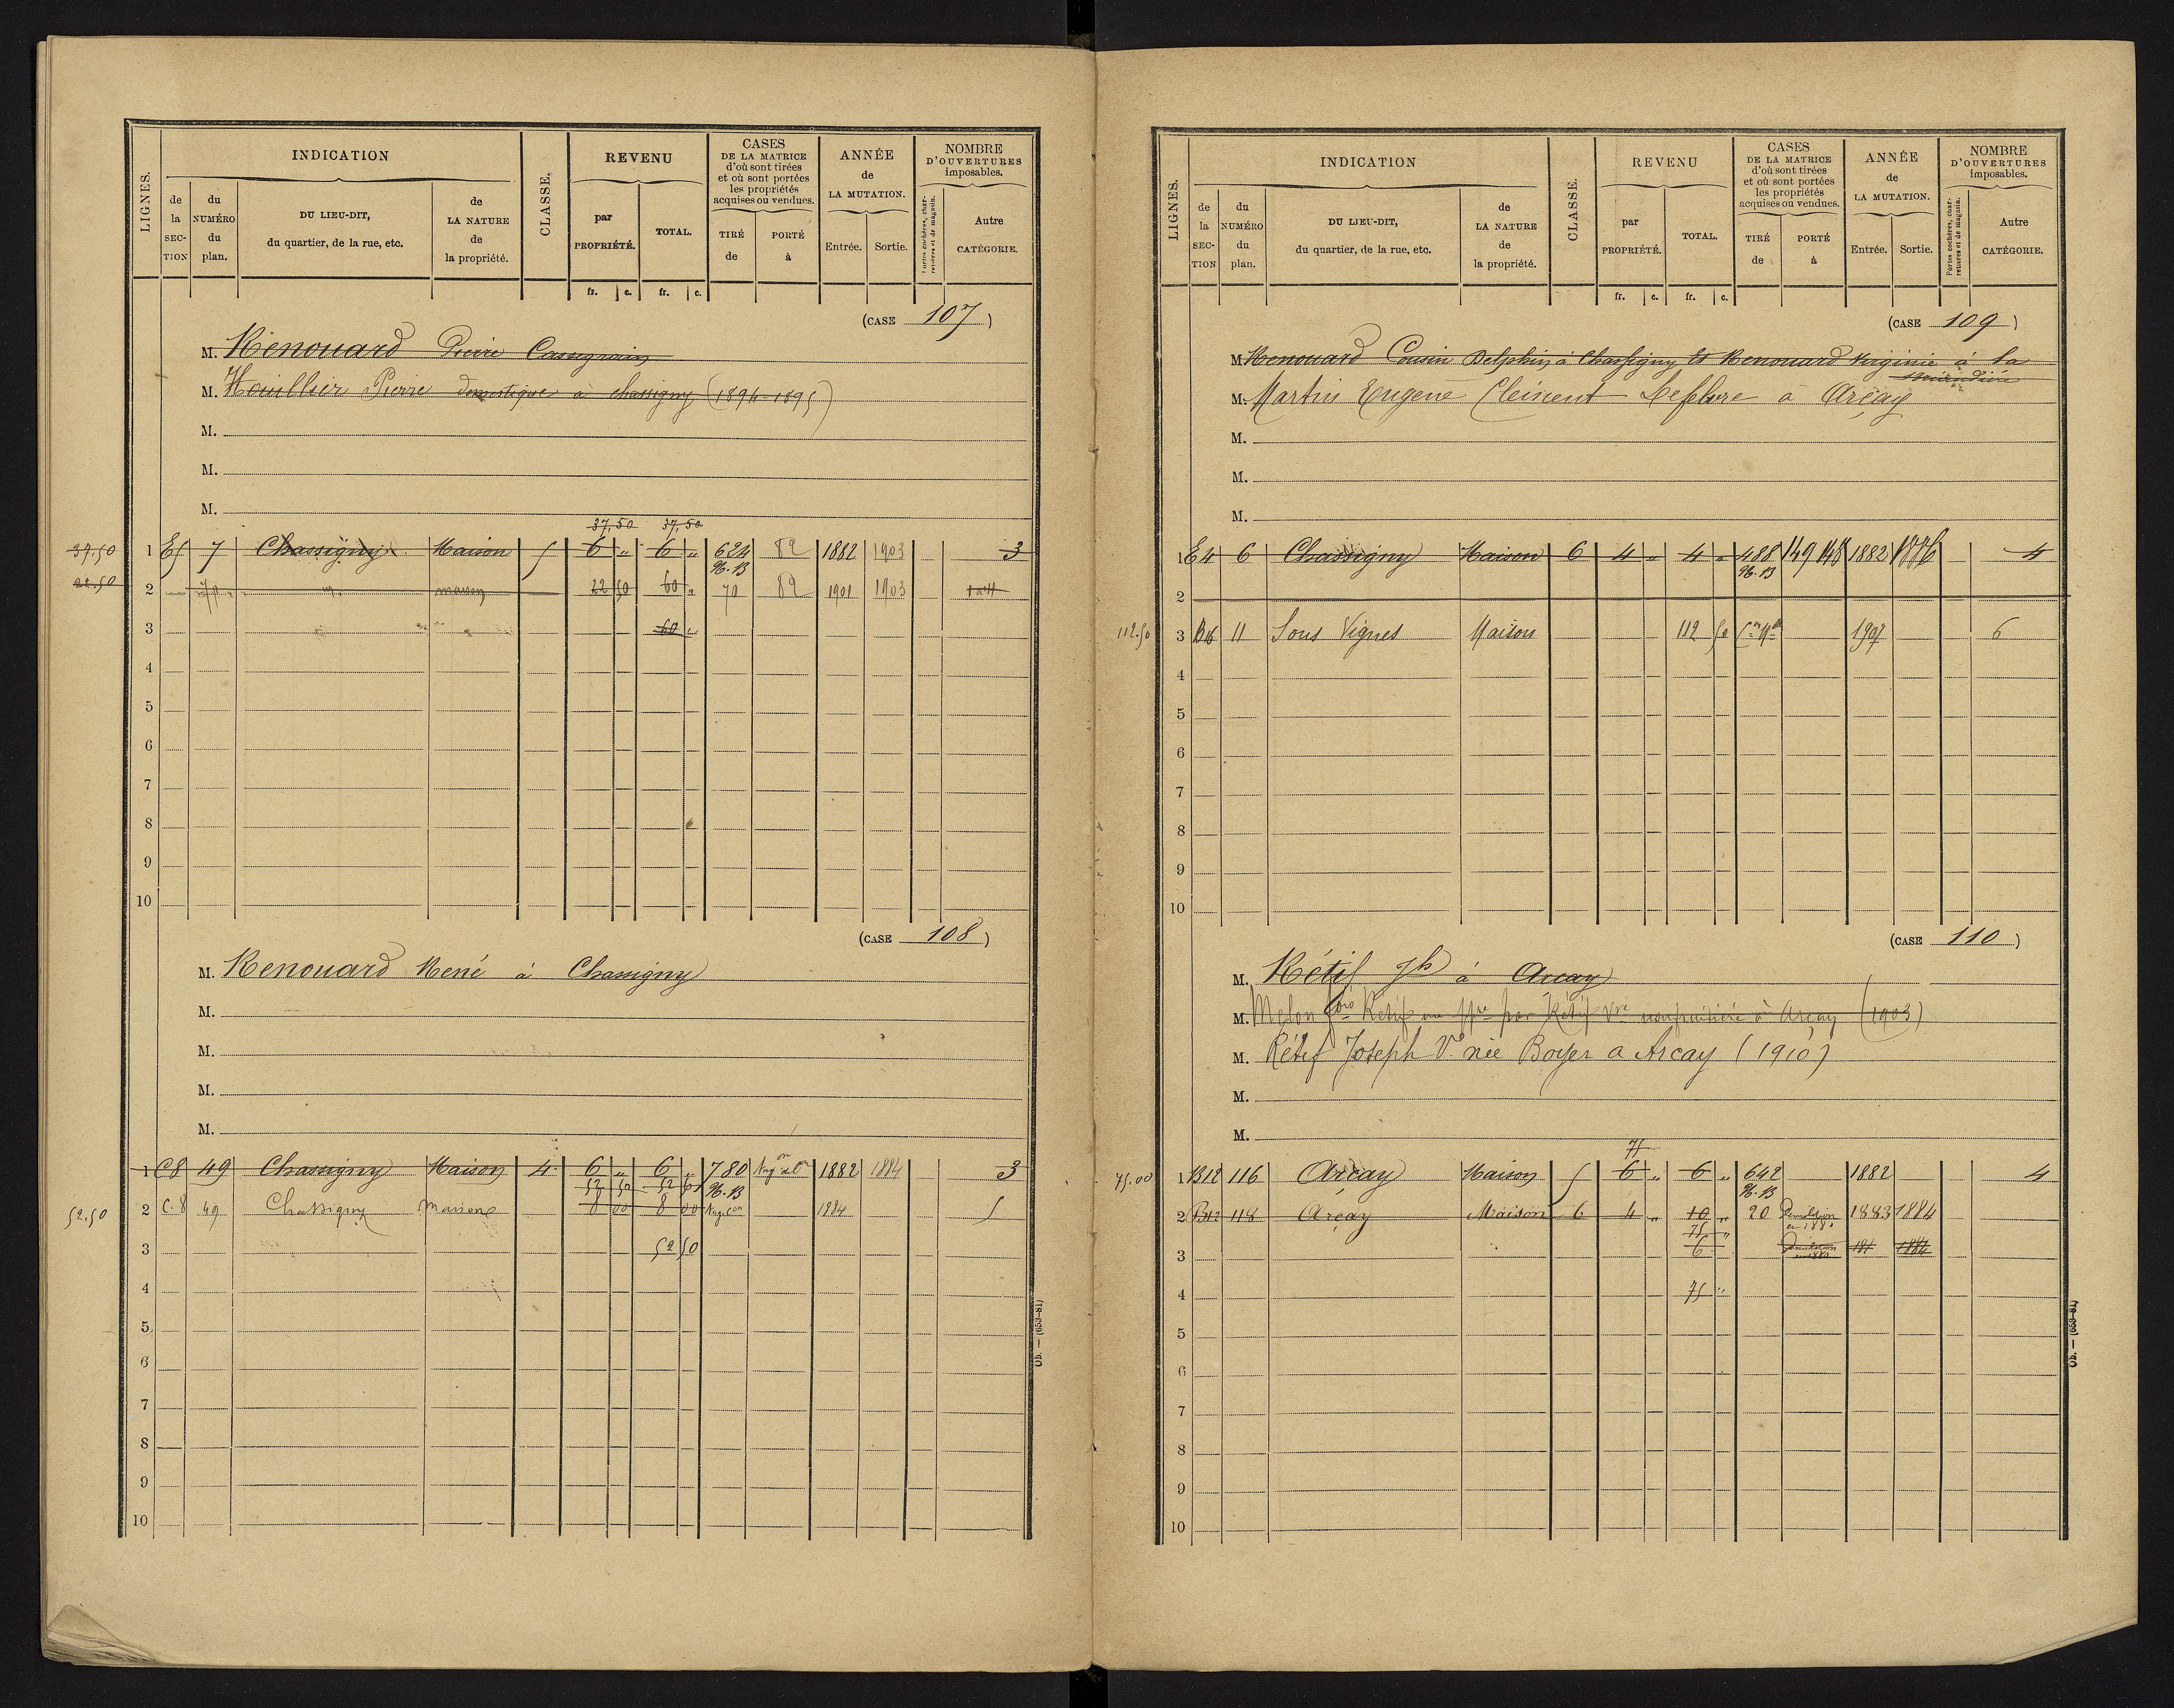 LIGNES.
INDICATION
de la SECTION
du NUMÉRO du plan.
DU LIEU-DIT, du quartier, de la rue, etc.
de LA NATURE de la propriété.
CLASSE.
REVENU
par PROPRIÉTÉ.
TOTAL.
fr. c. fr. c.
CASES DE LA MATRICE d'où sont tirées et où sont portées les propriétés acquises ou vendues.
TIRÉ de
PORTÉ à
ANNÉE de LA MUTATION.
Entrée. Sortie.
NOMBRE D'OUVERTURES imposables.
Portes cochères, charretières et de magasin.
Autre CATÉGORIE.
(CASE 107)
M. Renouard Pierre
M. Houllier Pierre domestique à chassigny (1894-1895)
M.
M.
M.
37,50 37,50
37.50 1 E5 7 Chassigny Maison 5 6 " 6 " 624 82 1882 1903 3
96.13
22.50 2 7p. maison 22 50 60 " 70 82 1901 1903
3 60 "
4
5
6
7
8
9
10
(CASE 108)
M. Renouard René à Chassigny
M.
M.
M.
M.
1 C8 49 Chassigny Maison 4 6 " 6 " 780 1882 1884 3
52 50 52 50 96.13
52.50 2 C.8 49 Chassigny maison 8 00 8 00 1884 5
3 52 50
4
5
6
7
8
9
10
Ob. — (653-81)
LIGNES.
INDICATION
de la SECTION
du NUMÉRO du plan.
DU LIEU-DIT, du quartier, de la rue, etc.
de LA NATURE de la propriété.
CLASSE.
REVENU
par PROPRIÉTÉ.
TOTAL.
fr. c. fr. c.
CASES DE LA MATRICE d'où sont tirées et où sont portées les propriétés acquises ou vendues.
TIRÉ de
PORTÉ à
ANNÉE de LA MUTATION.
Entrée. Sortie.
NOMBRE D'OUVERTURES imposables.
Portes cochères, charretières et de magasin.
Autre CATÉGORIE.
(CASE 109)
M. Renouard Cousin Delphin à Chassigny Et Renouard Virginie à la
M. Martin Eugène Clément à Arçay
M.
M.
M.
1 E4 6 Chassigny Maison 6 4 " 4 " 488 149 148 1882 4
96.13
2
112.50 3 B16 11 Sous Vignes Maison 112 50 1907 6
4
5
6
7
8
9
10
(CASE 110)
M. Rétif Jh à Arcay
M. Melon Rétif par Rétif Vve usufruitière à Arçay (1903)
M. Rétif Joseph Ve née Boyer a Arcay (1910)
M.
M.
75
75.00 1 B12 116 Arcay Maison 5 6 " 6 " 642 1882 4
96.13
2 B12 118 Arçay Maison 6 4 " 10 " 20 Démolition 1883 1884
75 "
3 6 1884
4 75 "
5
6
7
8
9
10
Ob. — (653-81)